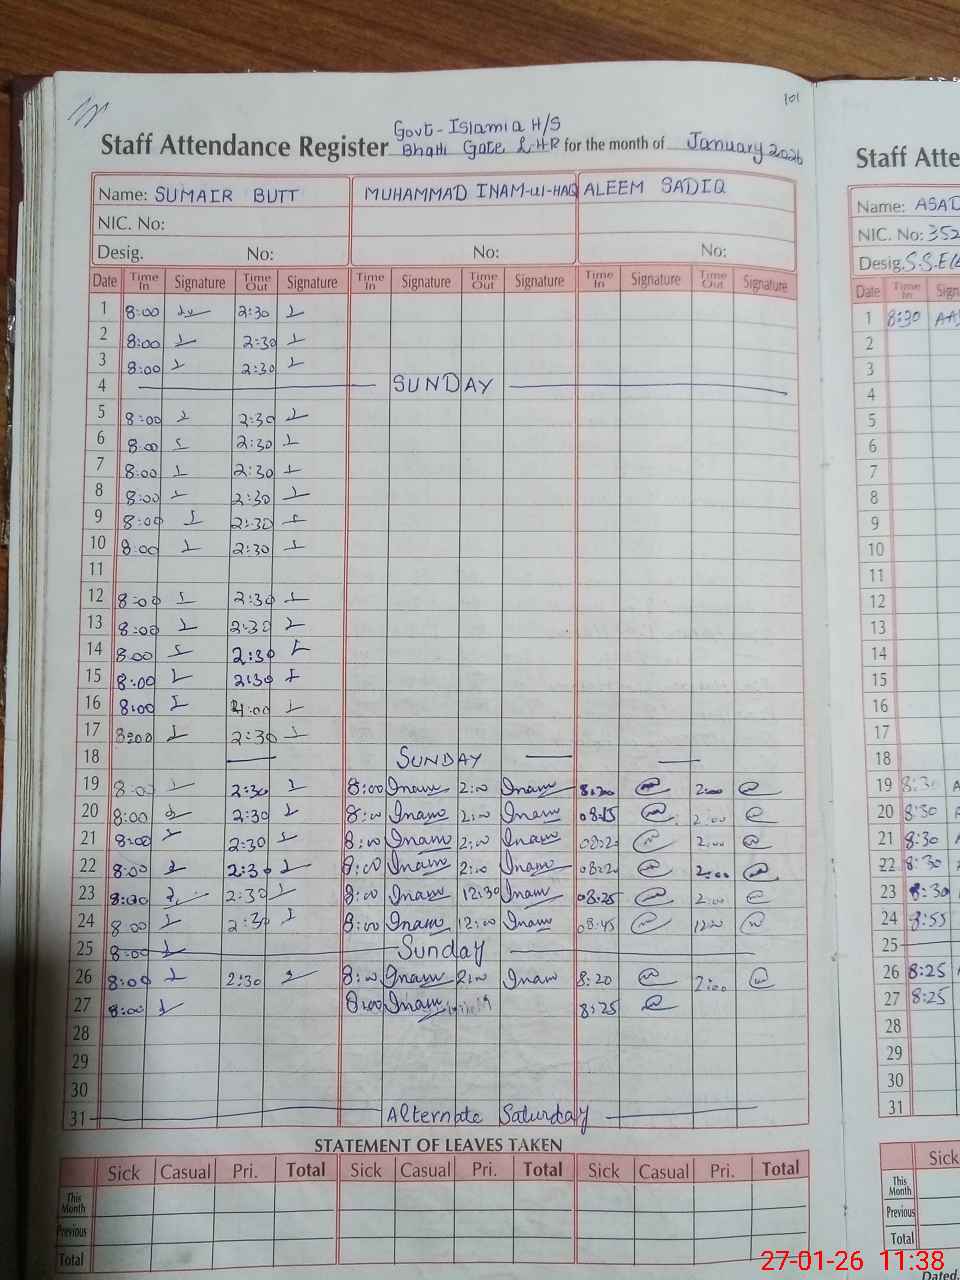 101
Govt- Islamia H/S
Staff Attendance Register Bhatti Gate LHR for the month of January 2026
Name: SUMAIR BUTT MUHAMMAD INAM-ul-HAQ ALEEM SADIQ
NIC. No:
Desig. No: No: No:
Date Time In Signature Time Out Signature Time In Signature Time Out Signature Time In Signature Time Out Signature
1 8:00 2:30
2 8:00 2:30
3 8:00 2:30
4 SUNDAY
5 8:00 2:30
6 8:00 2:30
7 8:00 2:30
8 8:00 2:30
9 8:00 2:30
10 8:00 2:30
11
12 8:00 2:30
13 8:00 2:30
14 8:00 2:30
15 8:00 2:30
16 8:00 4:00
17 8:00 2:30
18 SUNDAY
19 8:00 2:30 8:00 Inam 2:00 Inam 8:20 2:00
20 8:00 2:30 8:00 Inam 2:00 Inam 08:15 2:00
21 8:00 2:30 8:00 Inam 2:00 Inam 08:20 2:00
22 8:00 2:30 8:00 Inam 2:00 Inam 08:20 2:00
23 8:00 2:30 8:00 Inam 12:30 Inam 08:25 2:00
24 8:00 2:30 8:00 Inam 12:00 Inam 08:45 12:00
25 8:00 Sunday
26 8:00 2:30 8:00 Inam 2:00 Inam 8:20 2:00
27 8:00 8:00 Inam 8:25
28
29
30
31 Alternate Saturday
STATEMENT OF LEAVES TAKEN
Sick Casual Pri. Total Sick Casual Pri. Total Sick Casual Pri. Total
This Month
Previous
Total
Staff Atte
Name: ASAD
NIC. No: 352
Desig. S.S.E
Date Time In Sign
1 8:30
2
3
4
5
6
7
8
9
10
11
12
13
14
15
16
17
18
19 8:30
20 8:30
21 8:30
22 8:30
23 8:30
24 8:55
25
26 8:25
27 8:25
28
29
30
31
Sick
This Month
Previous
Total
Dated
27-01-26 11:38